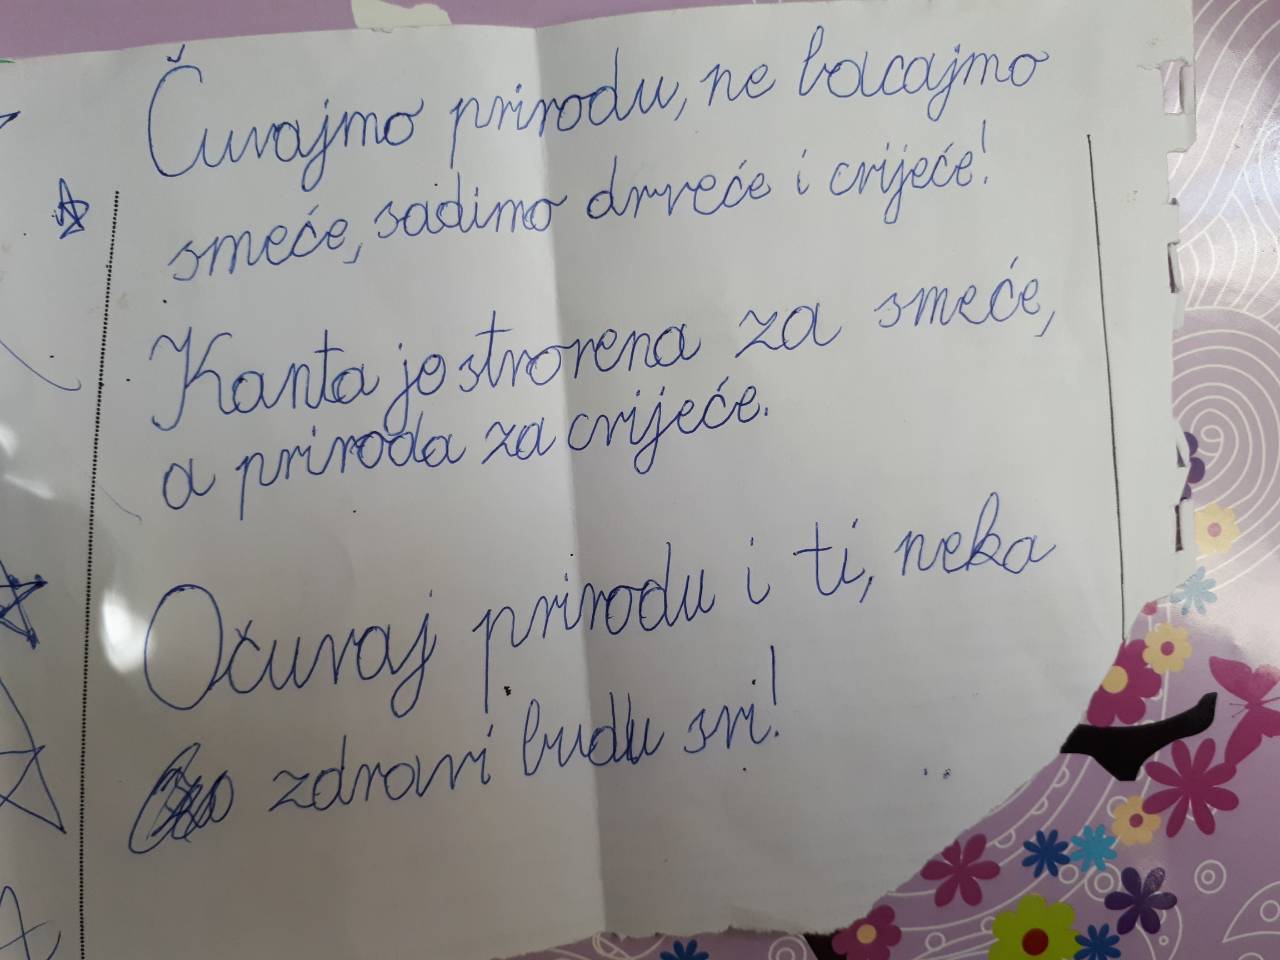 Čuvajmo prirodu, ne bacajmo
smeće, sadimo drveće i cvijeće!
Kanta je stvorena za smeće,
a priroda za cvijeće.
Očuvaj prirodu i ti, neka
zdravi budu svi!